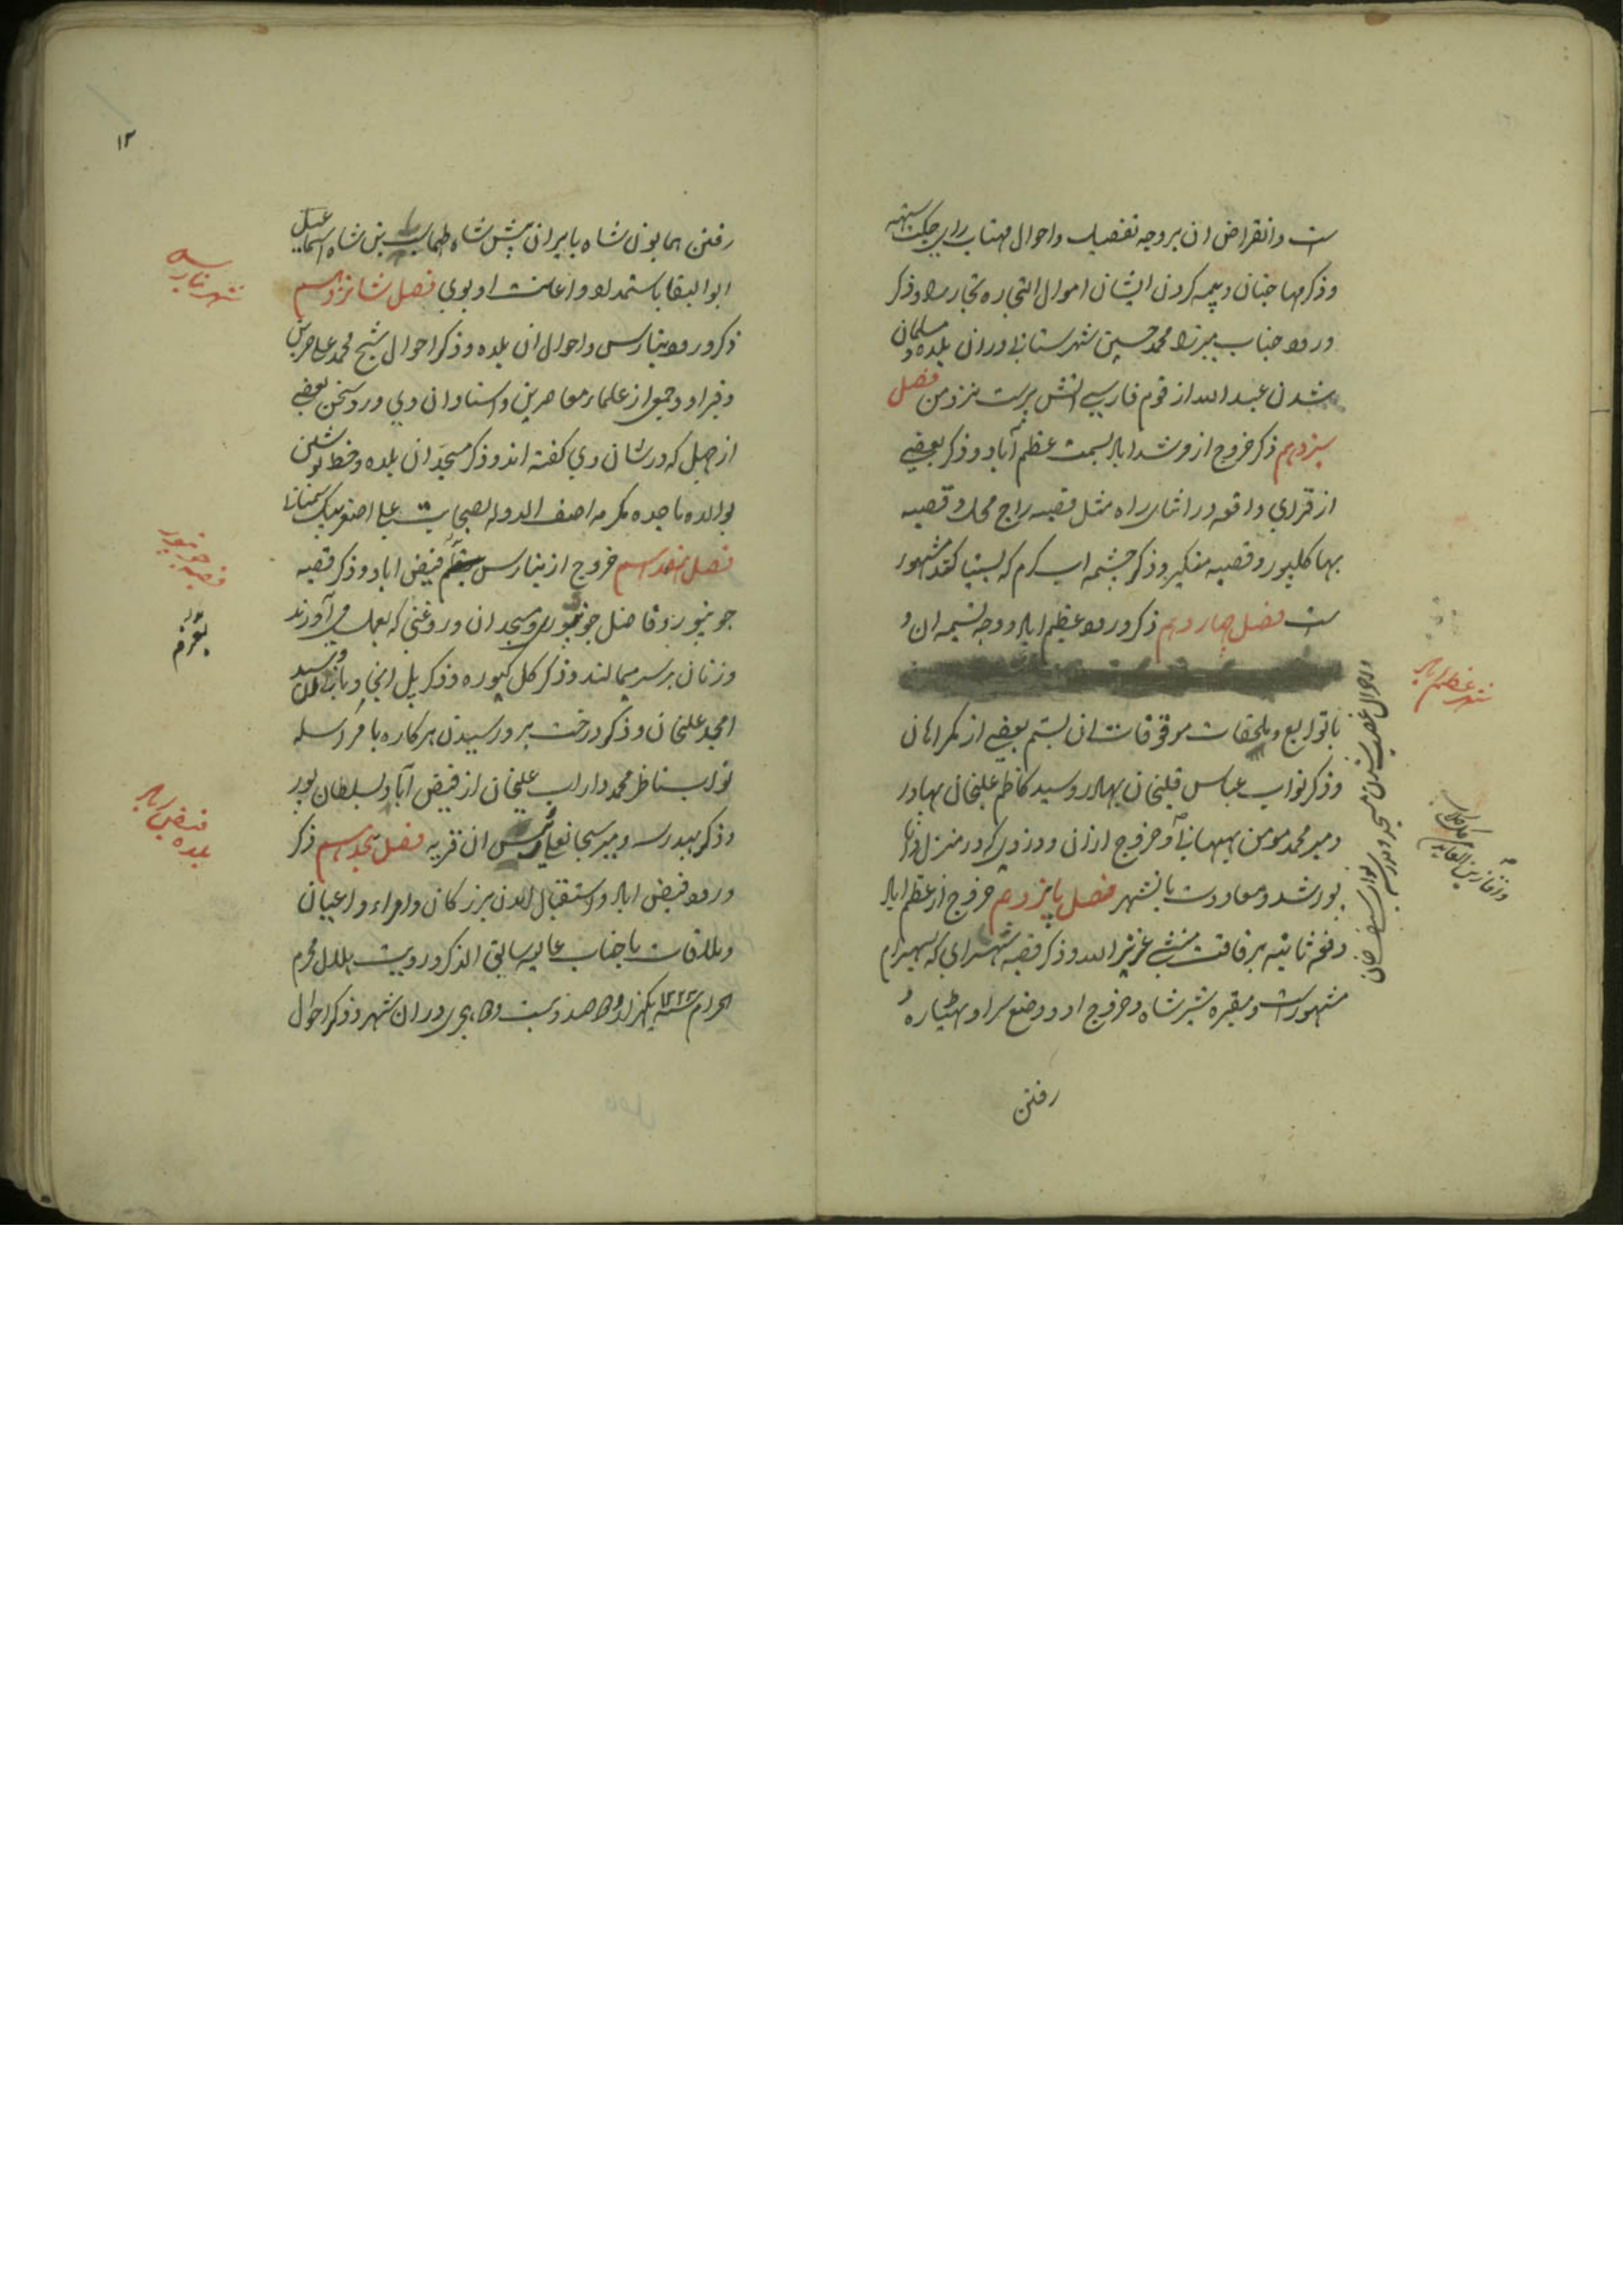 ست و انقراض ان بر وجه تفصیل و احوال مهتاب رای جکت سنهه
و ذکر مهاجنان و بیمه کردن ایشان اموال التجاره تجار را و ذکر
ورود جناب میرزا محمد حسین شهرستانی در ان بلده و مسلمان
شدن عبد الله از قوم فارسی اتش پرست نزد من فصل
سیزدهم ذکر خروج از مرشد اباد بسمت عظیم آباد و ذکر بعضی
از قرای واقعه در اثنای راه مثل قصبه راج محل و قصبه
بهاکلپور و قصبه منکیر و ذکر چشمه اب کرم که بسیتا کند مشهور
ست فصل چهاردهم ذکر ورود عظیم اباد و وجه تسمیه ان و
با توابع و ملحقات موقوفات ان بستم بعضی از کمراهان
و ذکر نواب عباس قلیخان بهادر و سید کاظم علیخان بهادر
و میر محمد مومن بهبهانی و خروج ازان و دزدی که در منزل
پور شد و معاودت بانشهر فصل پانزدهم خروج از عظیم اباد
دفعه ثانیه برفاقت منشی عزیز الله و ذکر قصبه شهسرای که بسهسرام
مشهور ست و مقبره شیر شاه و خروج او و وضع سرا و بهتیاره و
رفتن
و احوال غصب شدن مسجد و مدرسه
نواب سیف خان
شهر عظیم اباد
۱۲
رفتن همایون شاه بایران پیش شاه طهماسب بن شاه اسماعیل
ابو البقا باستمداد و اعانت او بوی فصل شانزدهم
ذکر ورود بنارس و احوال ان بلده و ذکر احوال شیخ محمد علی حزین
و قبر او و جمعی از علماء معاصرین و استادان وی و رد سخن بعضی
از جهل که در شان وی کفته اند و ذکر مسجد ان بلده و خط نوشتن
بوالده ماجده مکرمه اصف الدوله بصحابت علی اصغر بیک سمنانی
فصل هفدهم خروج از بنارس بعزم فیض اباد و ذکر قصبه
جونپور و فاضل جونپوری و مسجد ان و روغنی که بعمل می آورند
و زنان بر سر میمالند و ذکر کل کیوره و ذکر پل انجا و بانی ان و سید
امجد علیخان و ذکر درخت بر و رسیدن هرکاره با مراسله
نواب ناظر محمد داراب علیخان از فیض آباد بسلطان پور
و ذکر بهدرسه و میر سبحانعلی رئیس ان قریه فصل هجدهم ذکر
ورود فیض اباد و استقبال امدن بزرکان و امراء و اعیان
و ملاقات با جناب عالیه سابق الذکر و رویت هلال محرم
الحرام سنه ۱۲۲۲ یکهزار و دو صد و بیست و دو هجری در ان شهر و ذکر احوال
شهر بنارس
قصبه جونپور
بعزم
بلده فیض اباد